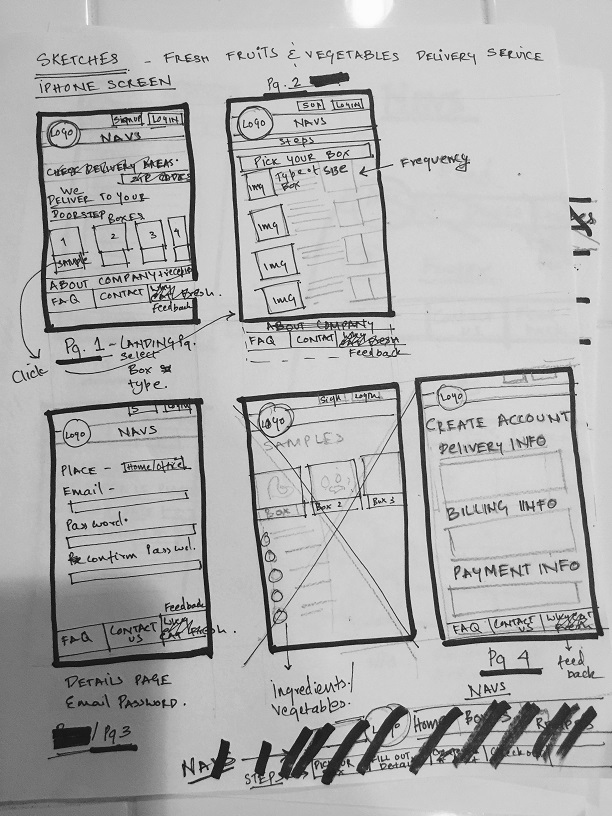 SKETCHES - FRESH FRUITS & VEGETABLES DELIVERY SERVICE
iPHONE SCREEN
Pg. 2
Logo
Signup
LOGIN
NAVS
CHECK DELIVERY AREAS.
ZIP CODES
We
DELIVER TO YOUR
DOORSTEP BOXES
1
2
3
4
SAMPLE
ABOUT COMPANY
FAQ
CONTACT
Fresh.
Feedback
Pg. 1 - LANDING Pg.
Click
select
Box
type.
LOGO
LOGIN
NAVS
Steps
PICK YOUR BOX
Img
Type of
Box
SIZE
Frequency
Img
Img
Img
ABOUT COMPANY
FAQ
CONTACT
Feedback
Logo
Login
NAVS
PLACE - Home/office
Email -
Password.
Feedback
FAQ
CONTACT
US
DETAILS PAGE
Email PASSWORD.
/ Pg 3
LOGO
Sign
Login
SAMPLES
Box
Box 2
Box 3
Ingredients/
vegetables.
Logo
CREATE ACCOUNT
DELIVERY INFO
BILLING INFO
PAYMENT INFO
FAQ
CONTACT
US
Pg 4
feed
back
NAVS
Home
STEPS